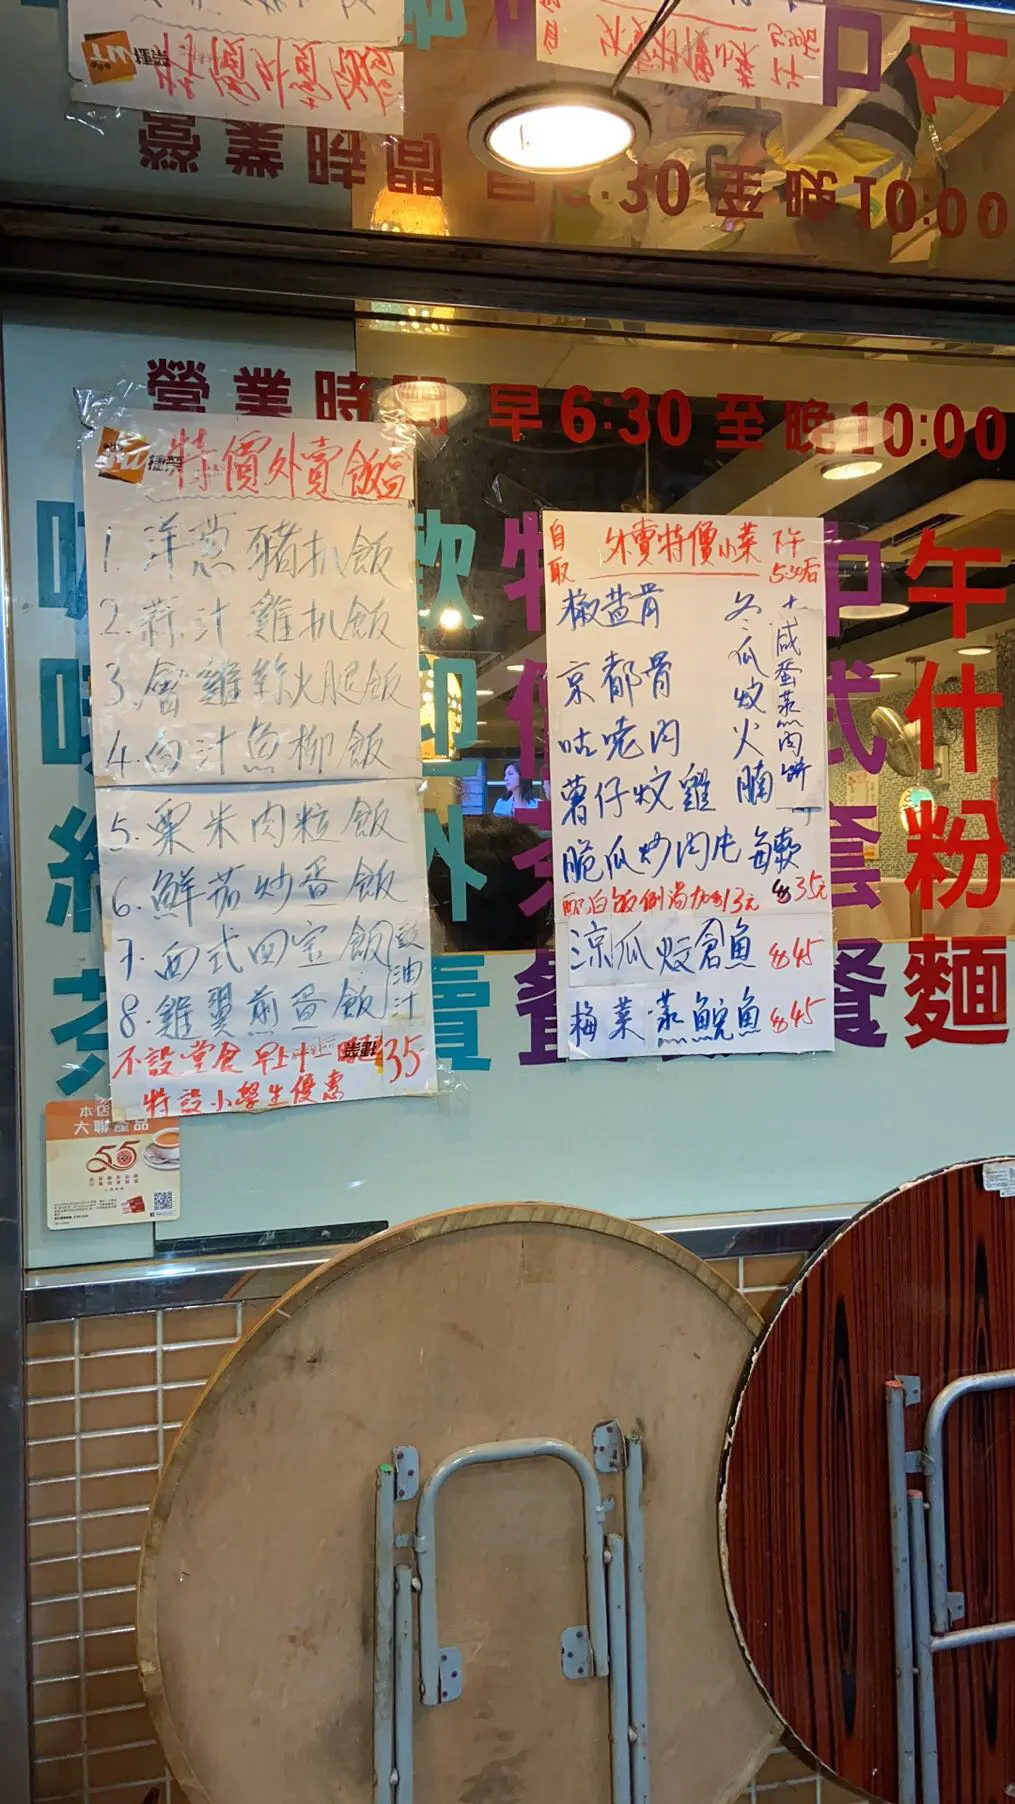 營業時間 早6:30 至晚10:00
捷榮
特價外賣飯盒
1. 洋葱豬扒飯
2. 蒜汁雞扒飯
3. 會雞絲火腿飯
4. 白汁魚柳飯
5. 粟米肉粒飯
6. 鮮茄炒蛋飯
7. 西式四宝飯
8. 雞翼煎蛋飯
豉油汁
不設堂食 早上十一
捷榮
35
特設小學生優惠
自取
外賣特價小菜
下午
5:30后
椒盐骨
京都骨
咕咾肉
薯仔炆雞
脆瓜炒肉片
冬瓜炆火腩
咸蛋蒸肉餅
每款
$35元
配白飯例湯加$13元
涼瓜炆倉魚 $45
梅菜蒸鯇魚 $45
午
什
粉
麵
中
式
套
餐
賣
本店
大聯產品
55